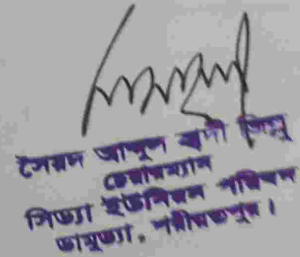 সৈয়দ আব্দুল হাদী জিল্লু
চেয়ারম্যান
সিড্যা ইউনিয়ন পরিষদ
ডামুড্যা, শরীয়তপুর।